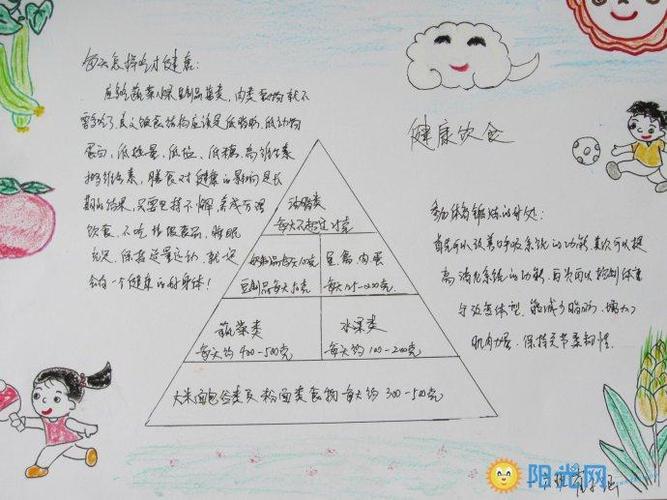 每天怎样吃才健康:
应多吃蔬菜水果豆制品菌类,肉类食物就不
要多吃了,总之饮食结构应该是低脂肪,低动物
蛋白,低热量,低盐,低糖,高维生素
期的结果,只要坚持不懈,养成合理
饮食,不吃垃圾食品,睡眠
充足,保持适量运动,就一定
会有一个健康的好身体!
健康饮食
油脂类
每天不超过25克
奶制品每天100克
豆制品每天50克
鱼、禽、肉、蛋
每天125-200克
蔬菜类
每天约400-500克
水果类
每天约100-200克
大米面包谷类及粉面类食物每天约300-500克
参加体育锻炼的好处:
首先可以改善呼吸系统的功能,其次可以提
高消化系统的功能,再次可以控制体重
与改善体型,能减少脂肪,增加
肌肉力量,保持关节柔韧性.
阳光网